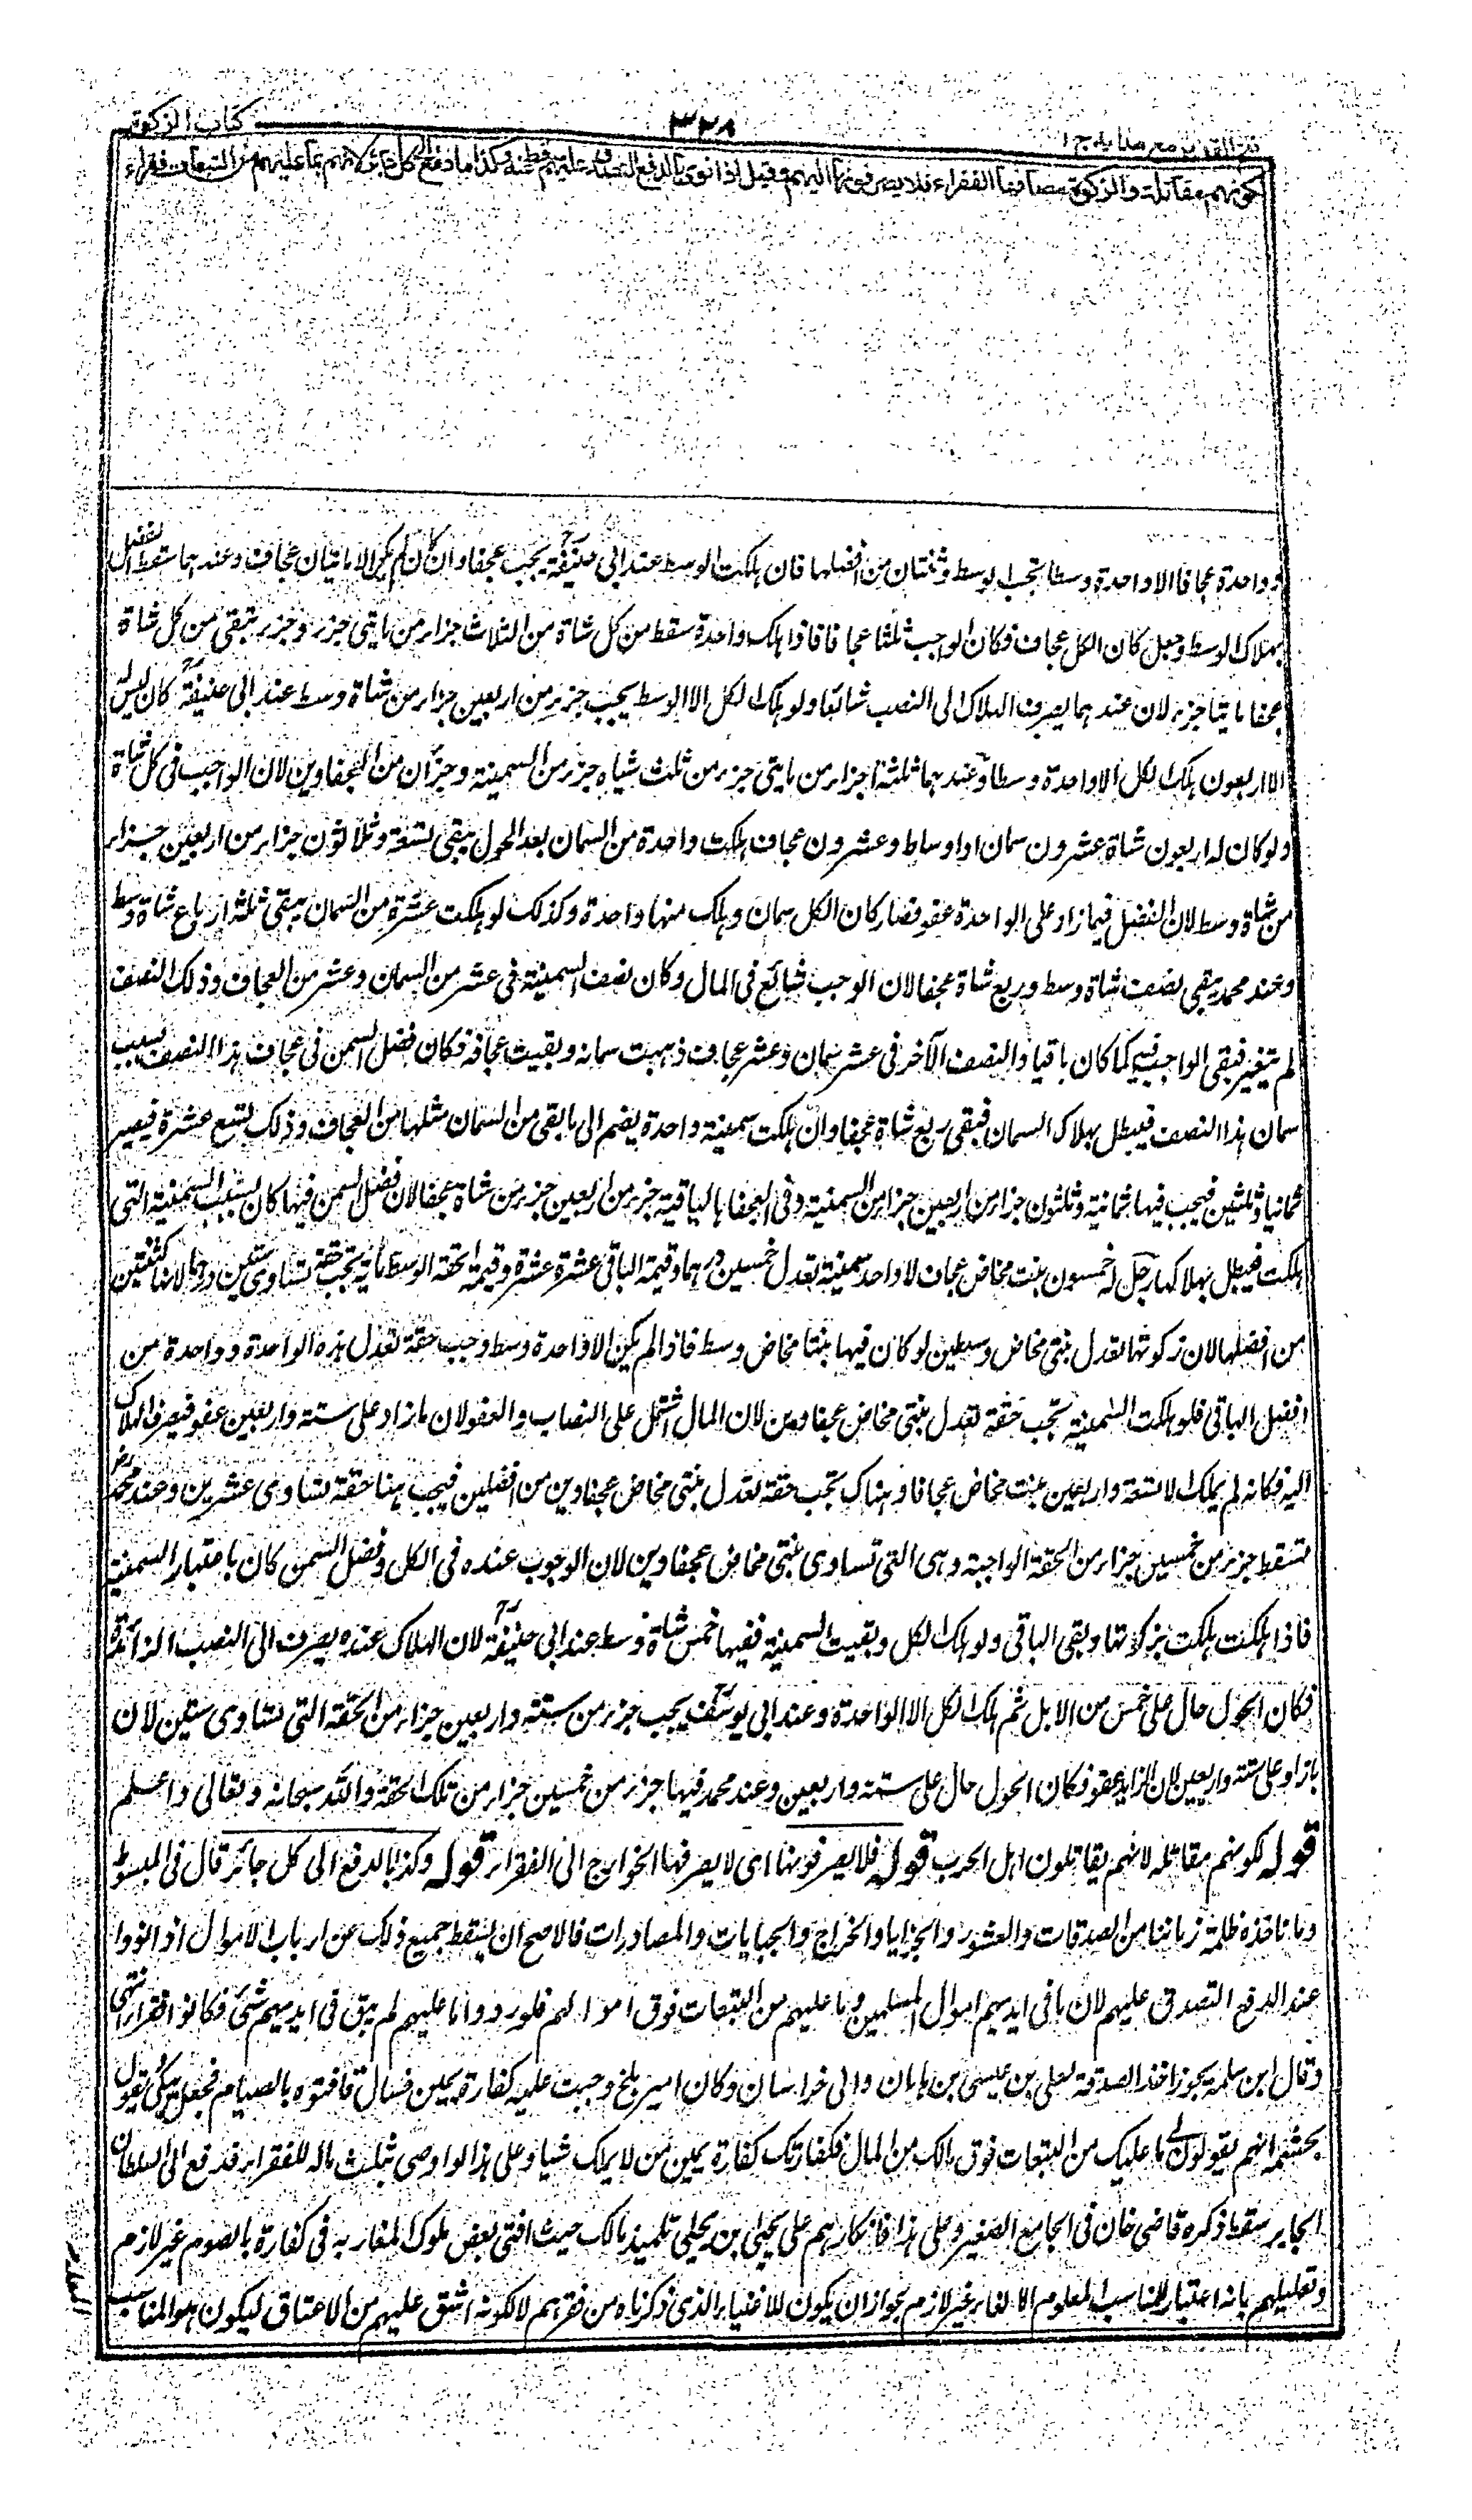 فتح القدير مع هدايه ج ١
٣٢٨
كتاب الزكوة
كونهم مقاتلة والزكوة مصرفها الفقراء فلا يصرفونها اليهم وقيل اذا نوى بالدفع التصدق عليهم سقط عنه وكذا ما دفع الى كل جائر لانهم بما عليهم من التبعات فقراء
وواحدة عجافا الا واحدة وسطا تجب الوسط وثنتان من افضلها فان هلكت الوسط عند ابى حنيفة رح يجب عجفاوان كان لم يكن الا مائتان عجاف وعندهما سقط الفضل
بهلاك الوسط وجعل كان الكل عجاف وكان الواجب ثلثا عجافا فاذا هلك واحدة سقط من كل شاة من الثلاث جزء من مايتى جزء وجزء تبقى من كل شاة
عجفا مايتا جزء لان عندهما يصرف الهلاك الى النصب شائعا ولو هلك الكل الا الوسط يجب جزء من اربعين جزاء من شاة وسط عند ابى حنيفة رح كان ليس له
الا اربعون هلك الكل الا واحدة وسطا وعندهما ثلثة اجزاء من مايتى جزء من ثلث شياه جزء من السمينة وجزآن من العجفاوين لان الواجب فى كل شاة
ولو كان له اربعون شاة عشرون سمان او اوساط وعشرون عجاف هلكت واحدة من السمان بعد الحول يبقى تسعة وثلاثون جزاء من اربعين جزاء
من شاة وسط لان الفضل فيما زاد على الواحدة عفو فصار كان الكل سمان وهلك منها واحدة وكذلك لو هلكت عشرة من السمان يبقى ثلثة ارباع شاة وسط
وعند محمد يبقى نصف شاة وسط وربع شاة عجفا لان الوجب شائع فى المال وكان نصف السمينة فى عشر من السمان وعشر من العجاف وذلك النصف
لم يتغير فبقى الواجب فيه كما كان باقيا والنصف الآخر فى عشر سمان وعشر عجاف ذهبت سمانه وبقيت عجافه فكان فضل السمن فى عجاف هذا النصف بسبب
سمان هذا النصف فيبطل بهلاك السمان فبقى ربع شاة عجفا وان هلكت سمينة واحدة يضم الى ما بقى من السمان مثلها من العجاف وذلك تسع عشرة فيصير
ثمانيا وثلثين فيجب فيها ثمانية وثلثون جزا من اربعين جزا من السمينة وفى العجفا الباقية جزء من اربعين جزء من شاة عجفا لان فضل السمن فيها كان بسبب السمينة التى
هلكت فيبطل بهلاكها رجل له خمسون بنت مخاض عجاف الا واحد سمينة تعدل خمسين درهما وقيمة الباقى عشرة عشرة وقيمة الحقة الوسط مائة تجب حقة تساوى ستين درهما لانها كثنتين
من افضلها لان زكوتها تعدل بنتى مخاض وسطين لو كان فيها بنتا مخاض وسط فاذا لم يكن الا واحدة وسط وجب حقة تعدل هذه الواحدة وواحدة من
افضل الباقى فلو هلكت السمينة تجب حقة تعدل بنتى مخاض عجفاوين لان المال اشتمل على النصاب والعفو لان ما زاد على ستة واربعين عفو فيصرف الهلاك
اليه فكانه لم يملك الا تسعة واربعين بنت مخاض عجافا وهناك تجب حقة تعدل بنتى مخاض عجفاوين من افضلهن فيجب هنا حقة تساوى عشرين وعند محمد رح
تسقط جزء من خمسين جزاء من الحقة الواجبة وهى التى تساوى بنتى مخاض عجفاوين لان الوجوب عنده فى الكل وفضل السمن كان باعتبار السمينة
فاذا هلكت هلكت بزكوتها وبقى الباقى ولو هلك الكل وبقيت السمينة ففيها خمس شاة وسط عند ابى حنيفة رح لان الهلاك عنده يصرف الى النصب الزائدة
فكان الحول حال على خمس من الابل ثم هلك الكل الا الواحدة وعند ابى يوسف رح يجب جزء من ستة واربعين جزاء من الحقة التى تساوى ستين لان
ما زاد على ستة واربعين لان الزايد عفو فكان الحول حال على ستة واربعين وعند محمد فيها جزء من خمسين جزاء من تلك الحقة والله سبحانه وتعالى واعلم
قوله لكونهم مقاتلة لانهم يقاتلون اهل الحرب قوله فلا يصرفونها اى لا يصرفها الخوارج الى الفقراء قوله وكذا بالدفع الى كل جائر قال فى المبسوط
وما تاخذه ظلمة زماننا من الصدقات والعشور والجزايا والخراج والجبايات والمصادرات فالاصح ان يسقط جميع ذلك عن ارباب الاموال اذا نووا
عند الدفع التصدق عليهم لان ما فى ايديهم اموال المسلمين وما عليهم من التبعات فوق اموالهم فلو ردوا ما عليهم لم يبق فى ايديهم شئ فكانوا فقراء انتهى
وقال ابن سلمة يجوز اخذ الصدقة لعلى بن عيسى بن ماهان والى خراسان وكان امير بلخ وجبت عليه كفارة يمين فسال فافتوه بالصيام فجعل يبكى ويقول
لحشمه انهم يقولون لى ما عليك من التبعات فوق مالك من المال فكفارتك كفارة يمين من لا يملك شيا وعلى هذا لو اوصى بثلث ماله للفقراء فدفع الى السلطان
الجاير سقط ذكره قاضى خان فى الجامع الصغير وعلى هذا فانكارهم على يحيى بن يحيى تلميذ مالك حيث افتى بعض ملوك المغاربه فى كفارة بالصوم غير لازم
وتعليلهم بانه اعتبار للمناسب المعلوم الالغاء غير لازم لجواز ان يكون للاعتبار الذى ذكرناه من فقرهم لا لكونه اشق عليهم من الاعتاق ليكون هو المناسب